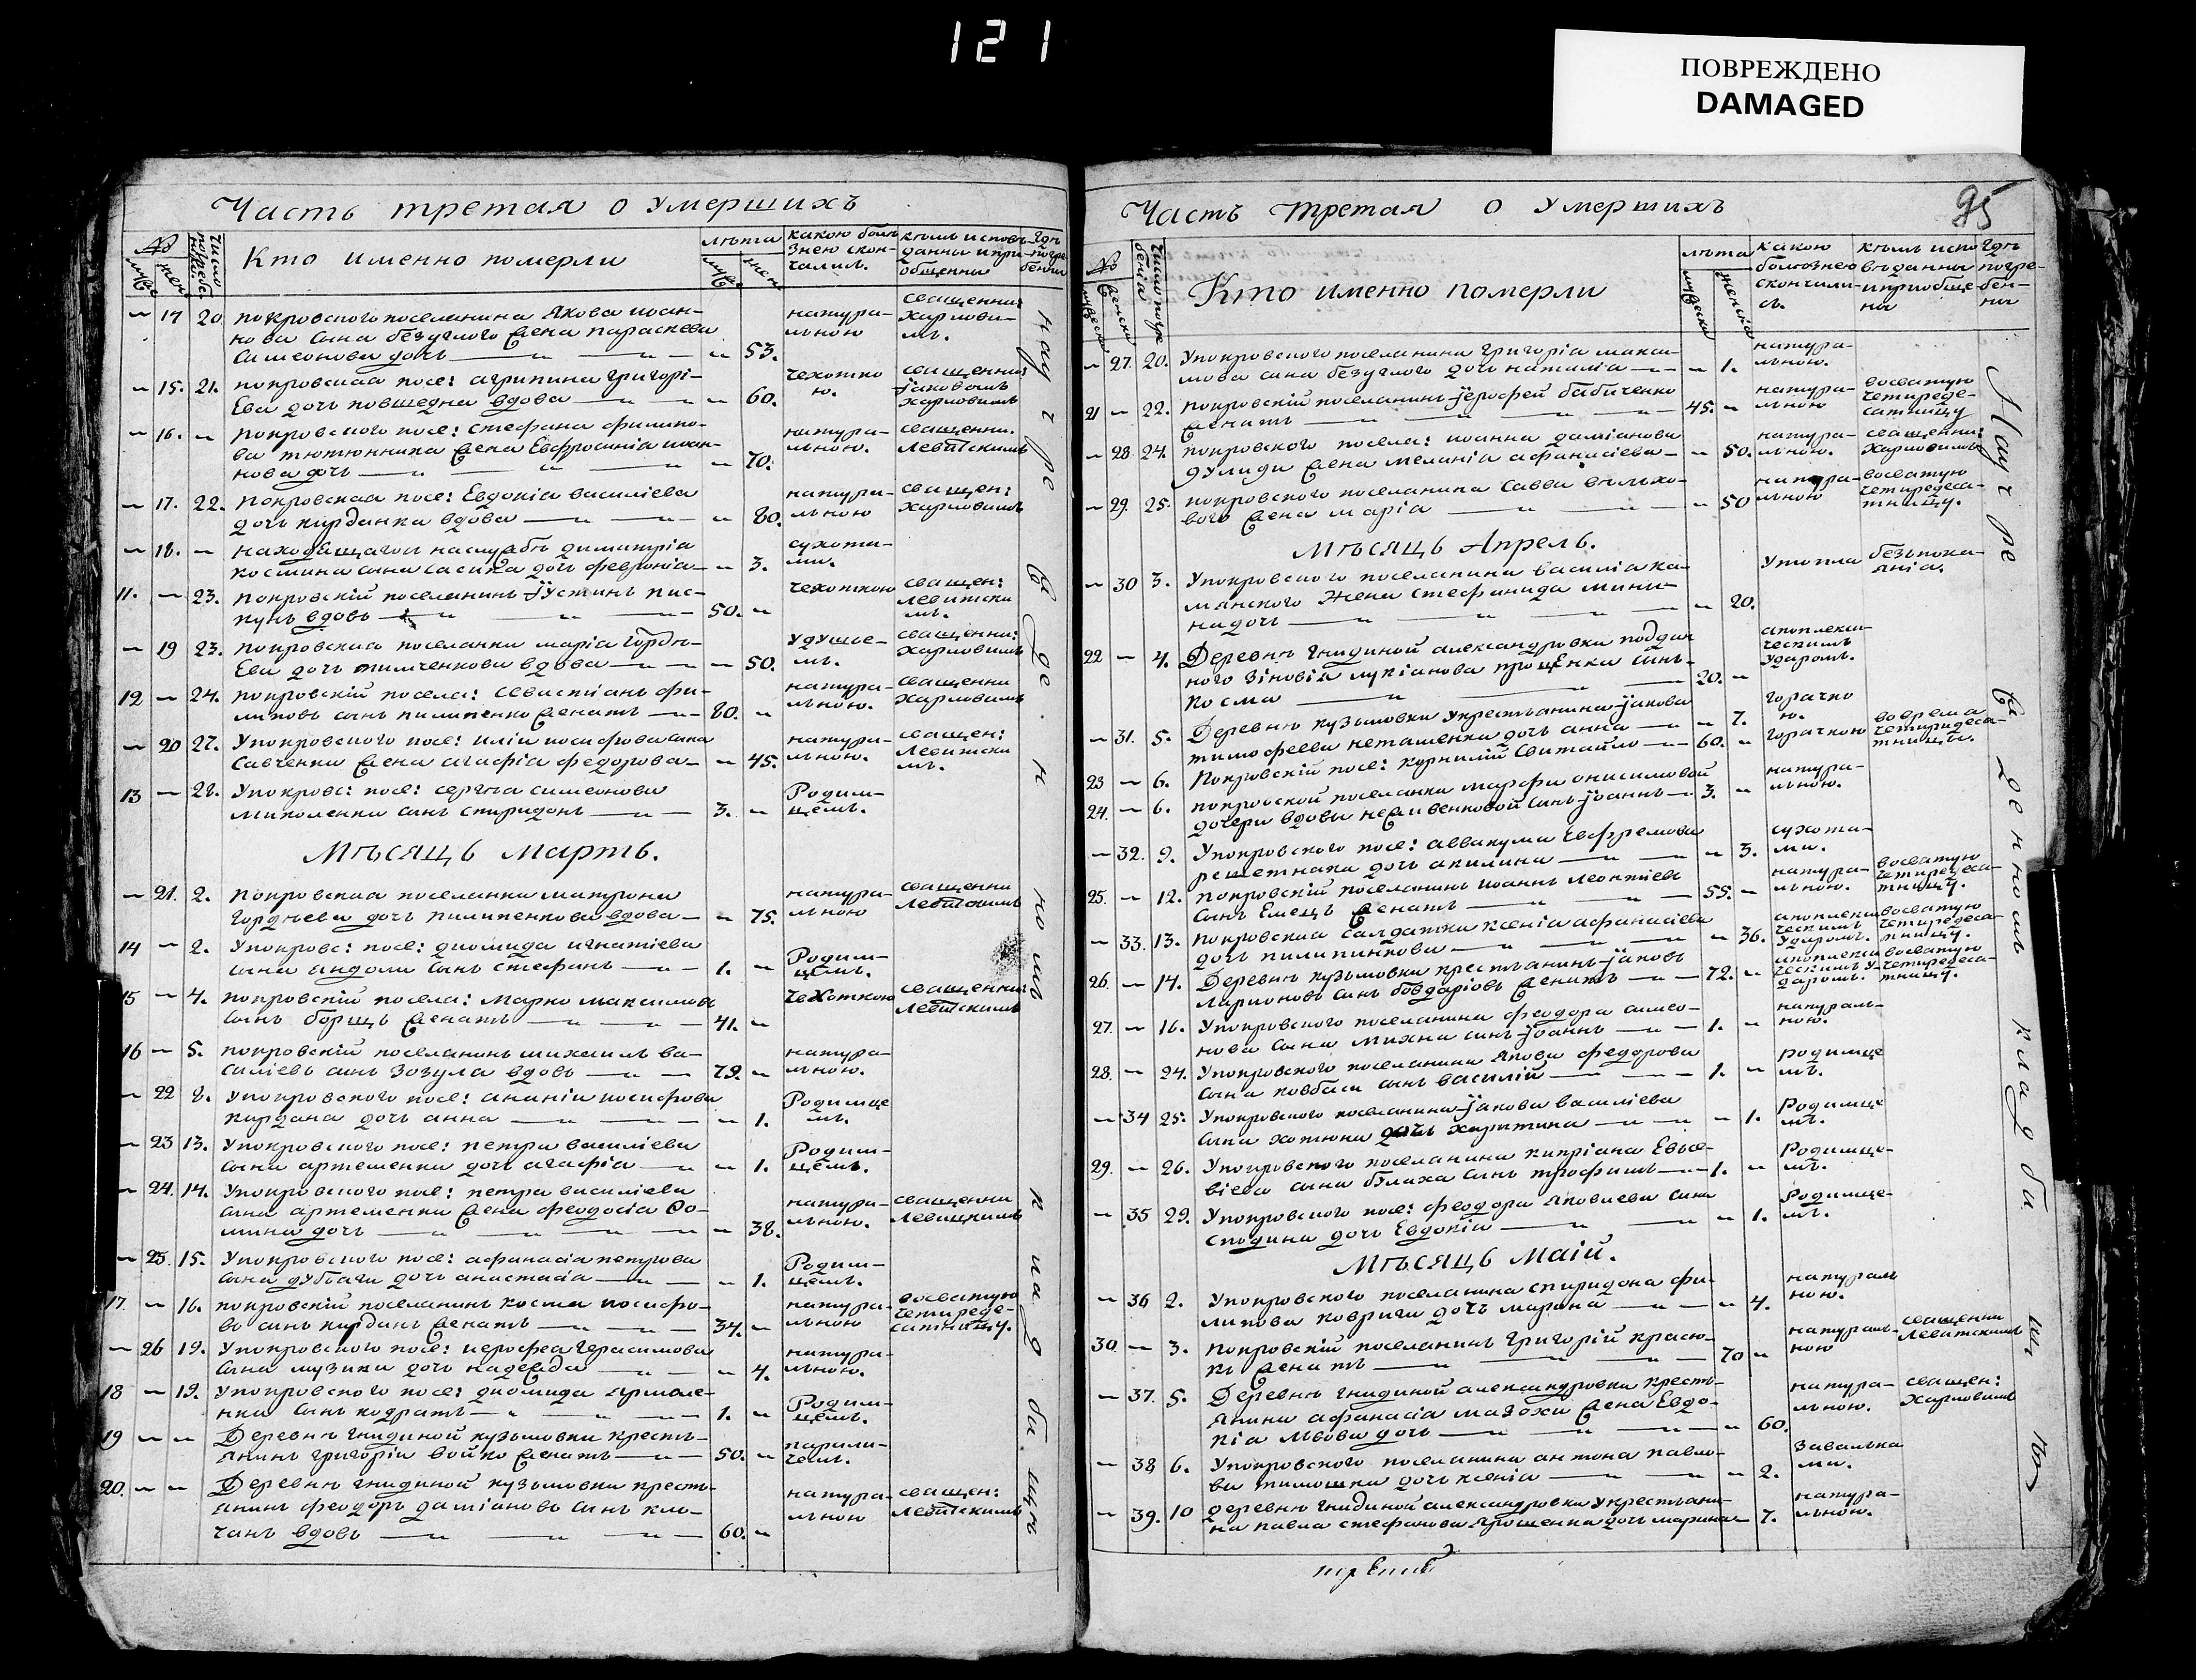 121
ПОВРЕЖДЕНО
DAMAGED
Часть третая о умершихъ
№
Число погребенія
Кто именно померли
лѣта
какою болѣзнею скончались.
кѣмъ исповѣданы и пріобщены
Гдѣ погребены
— 14 20 покровского поселанина Якова иоан-
нова сына безуглого жена параскева
Симеонова дочь — 53. натура-
льною священни: Харловимъ.
— 15. 21. покровская посе: агрипина григорі-
Ева дочь вдова — 60. чехотко
ю. священни: Харловимъ
— 16. — Покровского посе: стефана филипо-
ва тютюнника жена Евфросинія иоан-
нова дочь — 70. натура-
льною. священни. Левитскимъ
— 17. 22. Покровская посе: Евдокія василіева
дочь кирданка вдова — 80. натура-
льною священ: Харловимъ
— 18. — находящагося на службѣ димитрія
костина сына дочь февронія — 3. сухота-
ми.
11. — 23. покровскій поселанинъ Іустинъ пис-
кунъ вдовъ — 50. — чехоткою священ: Левитски
мъ.
— 19 23. покровская поселанка марія Гордѣ-
Ева дочь тимченкова вдова — 50. удушье-
мъ. священни: Харловимъ
12 — 24. покровскій посела: Севастіанъ фи-
липовъ сынъ пилипенко женатъ — 80. — натура-
льною. священни Харловимъ
— 20 27. Упокровского посе: иліи иосифова сына
Савченка жена агафіа федорова — 45. натура-
льною. священ: Левитски
мъ.
13 — 28. Упокровс: посе: сергѣа симеонова
Миколенка сынъ спиридонъ — 3. — Родим-
цемъ.
Мѣсяцъ Мартъ.
— 21. 2. покровская поселанка матрона
Гордѣева дочь пилипенкова вдова — 75. натура-
льною священни Левитскимъ
14 — 2. Упокровс: посе: диомида игнатіева
сына сынъ стефанъ — 1. — Родим-
цемъ.
15 — 4. покровскій посела: Марко максимовъ
сынъ борщъ женатъ — 41. — чехоткою священни: Левитскимъ
16 — 5. покровскій поселанинъ михаилъ ва-
силіевъ сынъ Зозуля вдовъ — 79. — натура-
льною.
— 22 8. Упокровского посе: ананіи иосифова
кирдана дочь анна — 1. Родимце
мъ.
— 23 13. Упокровского посе: петра василіева
сына артеменка дочь агафіа — 1. Родим-
цемъ.
— 24. 14. Упокровского посе: петра василіева
сына артеменка жена феодосіа Ѳо-
мина дочь — 38. натура-
льною. священни Левицкимъ
— 25. 15. Упокровского посе: афанасіа петрова
сына дубяги дочь анастасіа — 1. Родим-
цемъ.
17. — 16. покровскій поселанинъ косма иосифо-
въ сынъ кирданъ женатъ — 34. — натура-
льною восвятую
четыреде-
сатницу.
— 26 19. Упокровского посе: иерофеа Герасимова
сына музики дочь надежда — 4. натура-
льною.
18 — 19. Упокровского посе: диомида ярмоле-
нка сынъ кодратъ — 1. — Родим-
цемъ.
19 — — Деревнѣ гнидиной кузьмовки кресть-
янинъ григоріи войко женатъ — 50. — парали-
чемъ.
20. — — Деревнѣ гнидиной кузьмовки кресть-
янинъ феодоръ даміановъ сынъ кло-
чанъ вдовъ — 60. — натура-
льною священ: Левитскимъ
на учрежденномъ кладбищѣ
Часть третая о умершихъ
95
№
Число погребенія
Кто именно померли
лѣта
какою болѣзнею скончались.
кѣмъ исповѣданы и пріобщены
Гдѣ погребены
— 27. 20. Упокровского поселанина григоріа макси-
мова сына безуглого дочь наталіа — 1. натура-
льною.
21 — 22. покровскій поселанинъ іерофей бабиченко
женатъ — 45. — натура-
льною восвятую
четыреде-
сатницу
— 28. 24. покровского посела: иоанна даміанова
дулиди жена меланіа афанасіева — 50. натура-
льною. священни: Харловимъ
— 29. 25. покровского поселанина Савва вѣлько-
вого жена маріа — 50 натура-
льною восвятую
четыредеса-
тницу.
Мѣсяцъ Апрель.
— 30 3. Упокровского поселанина василіа ка-
мянского жена стефанида мини-
на дочь — 20. Утопла безьпока-
яніа.
22 — 4. Деревнѣ гнидиной александровки поддан
ного Зіновіа лукіанова прощЕнка сынъ-
косма — 20. — апоплекси-
ческимъ
ударомъ.
— 31. 5. Деревнѣ кузьмовки укрестьянина іакова
тимофеева неташенка дочь анна — 7. горачко
ю.
23 — 6. Покровскій посе: корнилій Свитайло — 60. — горачкою вовремя
четыридеса-
тницы.
24. — 6. покровской поселанки марфи онисимовой
дочери вдовы сынъ іоаннъ — 3. — натура-
льною.
— 32. 9. Упокровского посе: аввакума Ефремова
решетняка дочь акилина — 3. сухота-
ми.
25. — 12. покровскій поселанинъ иоаннъ леонтіевъ
сынъ Емецъ женатъ — 55. — натура-
льною. восвятую
четыредеса-
тницу.
— 33. 13. покровская салдатка ксеніа афанасіева
дочь пилипинкова — 36. апоплекси
ческимъ
ударомъ. восвятую
четыредеса-
тницу.
26. — 14. Деревнѣ кузьмовки крестьянинъ іаковъ
Ларионовъ сынъ бовдаріовъ женатъ — 72. — апоплекси
ческимъ у-
даромъ. восвятую
четыредеса-
тницу.
27. — 16. Упокровского поселанина феодора симео-
нова сына михна сынъ іоаннъ — 1. — натураль-
ною.
28. — 24. Упокровского поселанина якова федорова
сына ковбаси сынъ василій — 1. — Родимце
мъ.
— 34 25. Упокровского поселанина іакова василіева
сына хотюна дочь харитина — 1. Родимце
мъ.
29. — 26. Упокровского поселанина кипріана Евсе-
віева сына бѣлаха сынъ трофимъ — 1. — Родимце-
мъ.
— 35 29. Упокровского посе: феодора яковлева сына
сподина дочь Евдокіа — 1. Родимце-
мъ.
Мѣсяцъ Маій.
— 36 2. Упокровского поселанина спиридона фи-
липова ковриги дочь марина — 4. натураль
ною.
30. — 3. покровскій поселанинъ григорій красю-
къ женатъ — 70 — натураль-
ною священни Левитскимъ
— 37. 5. Деревнѣ гнидиной александровки кресть-
янина афанасіа мазохи жена Евдо-
кіа Львова дочь — 60. натура-
льною. священ: Харловимъ
— 38 6. Упокровского поселанина антона павло-
ва тимошки дочь ксеніа — 2. Завалька
ми.
— 39. 10 деревнѣ гнидиной александровки укрестьяни-
на павла стефанова ярошенка дочь марина — 7. натура-
льною.
На учрежденномъ кладбищѣ